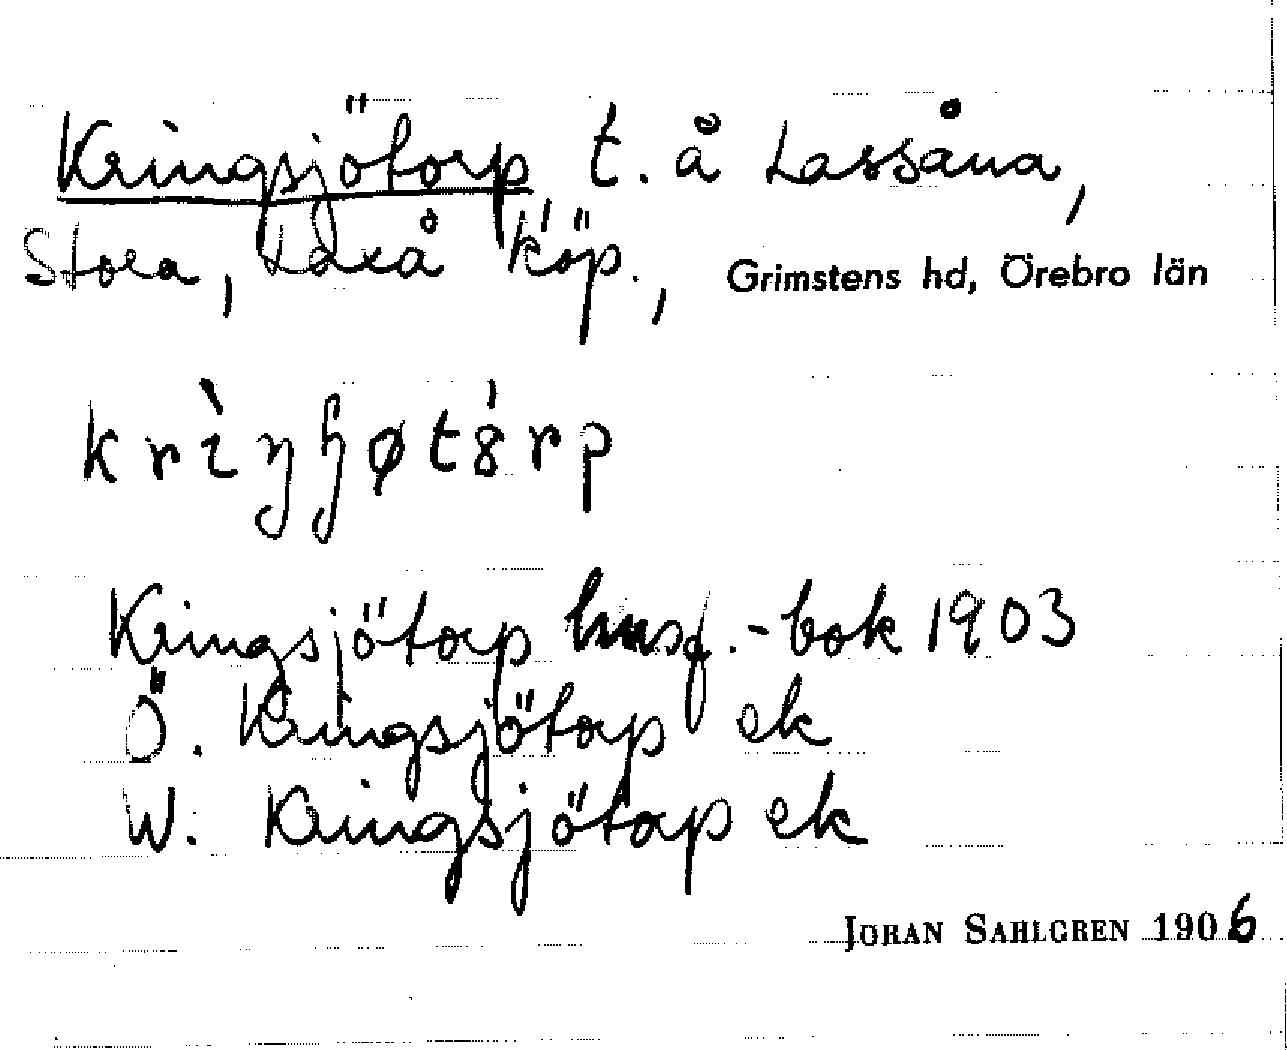 Kringsjötorp t. å Lassåna,
Stora, Laxå köp., Grimstens hd, Örebro län
krìŋɧøt8́rp
Kringsjötorp husf.-bok 1903
Ö. Kringsjötorp ek
W. Kringsjötorp ek
JOHAN SAHLGREN 1906